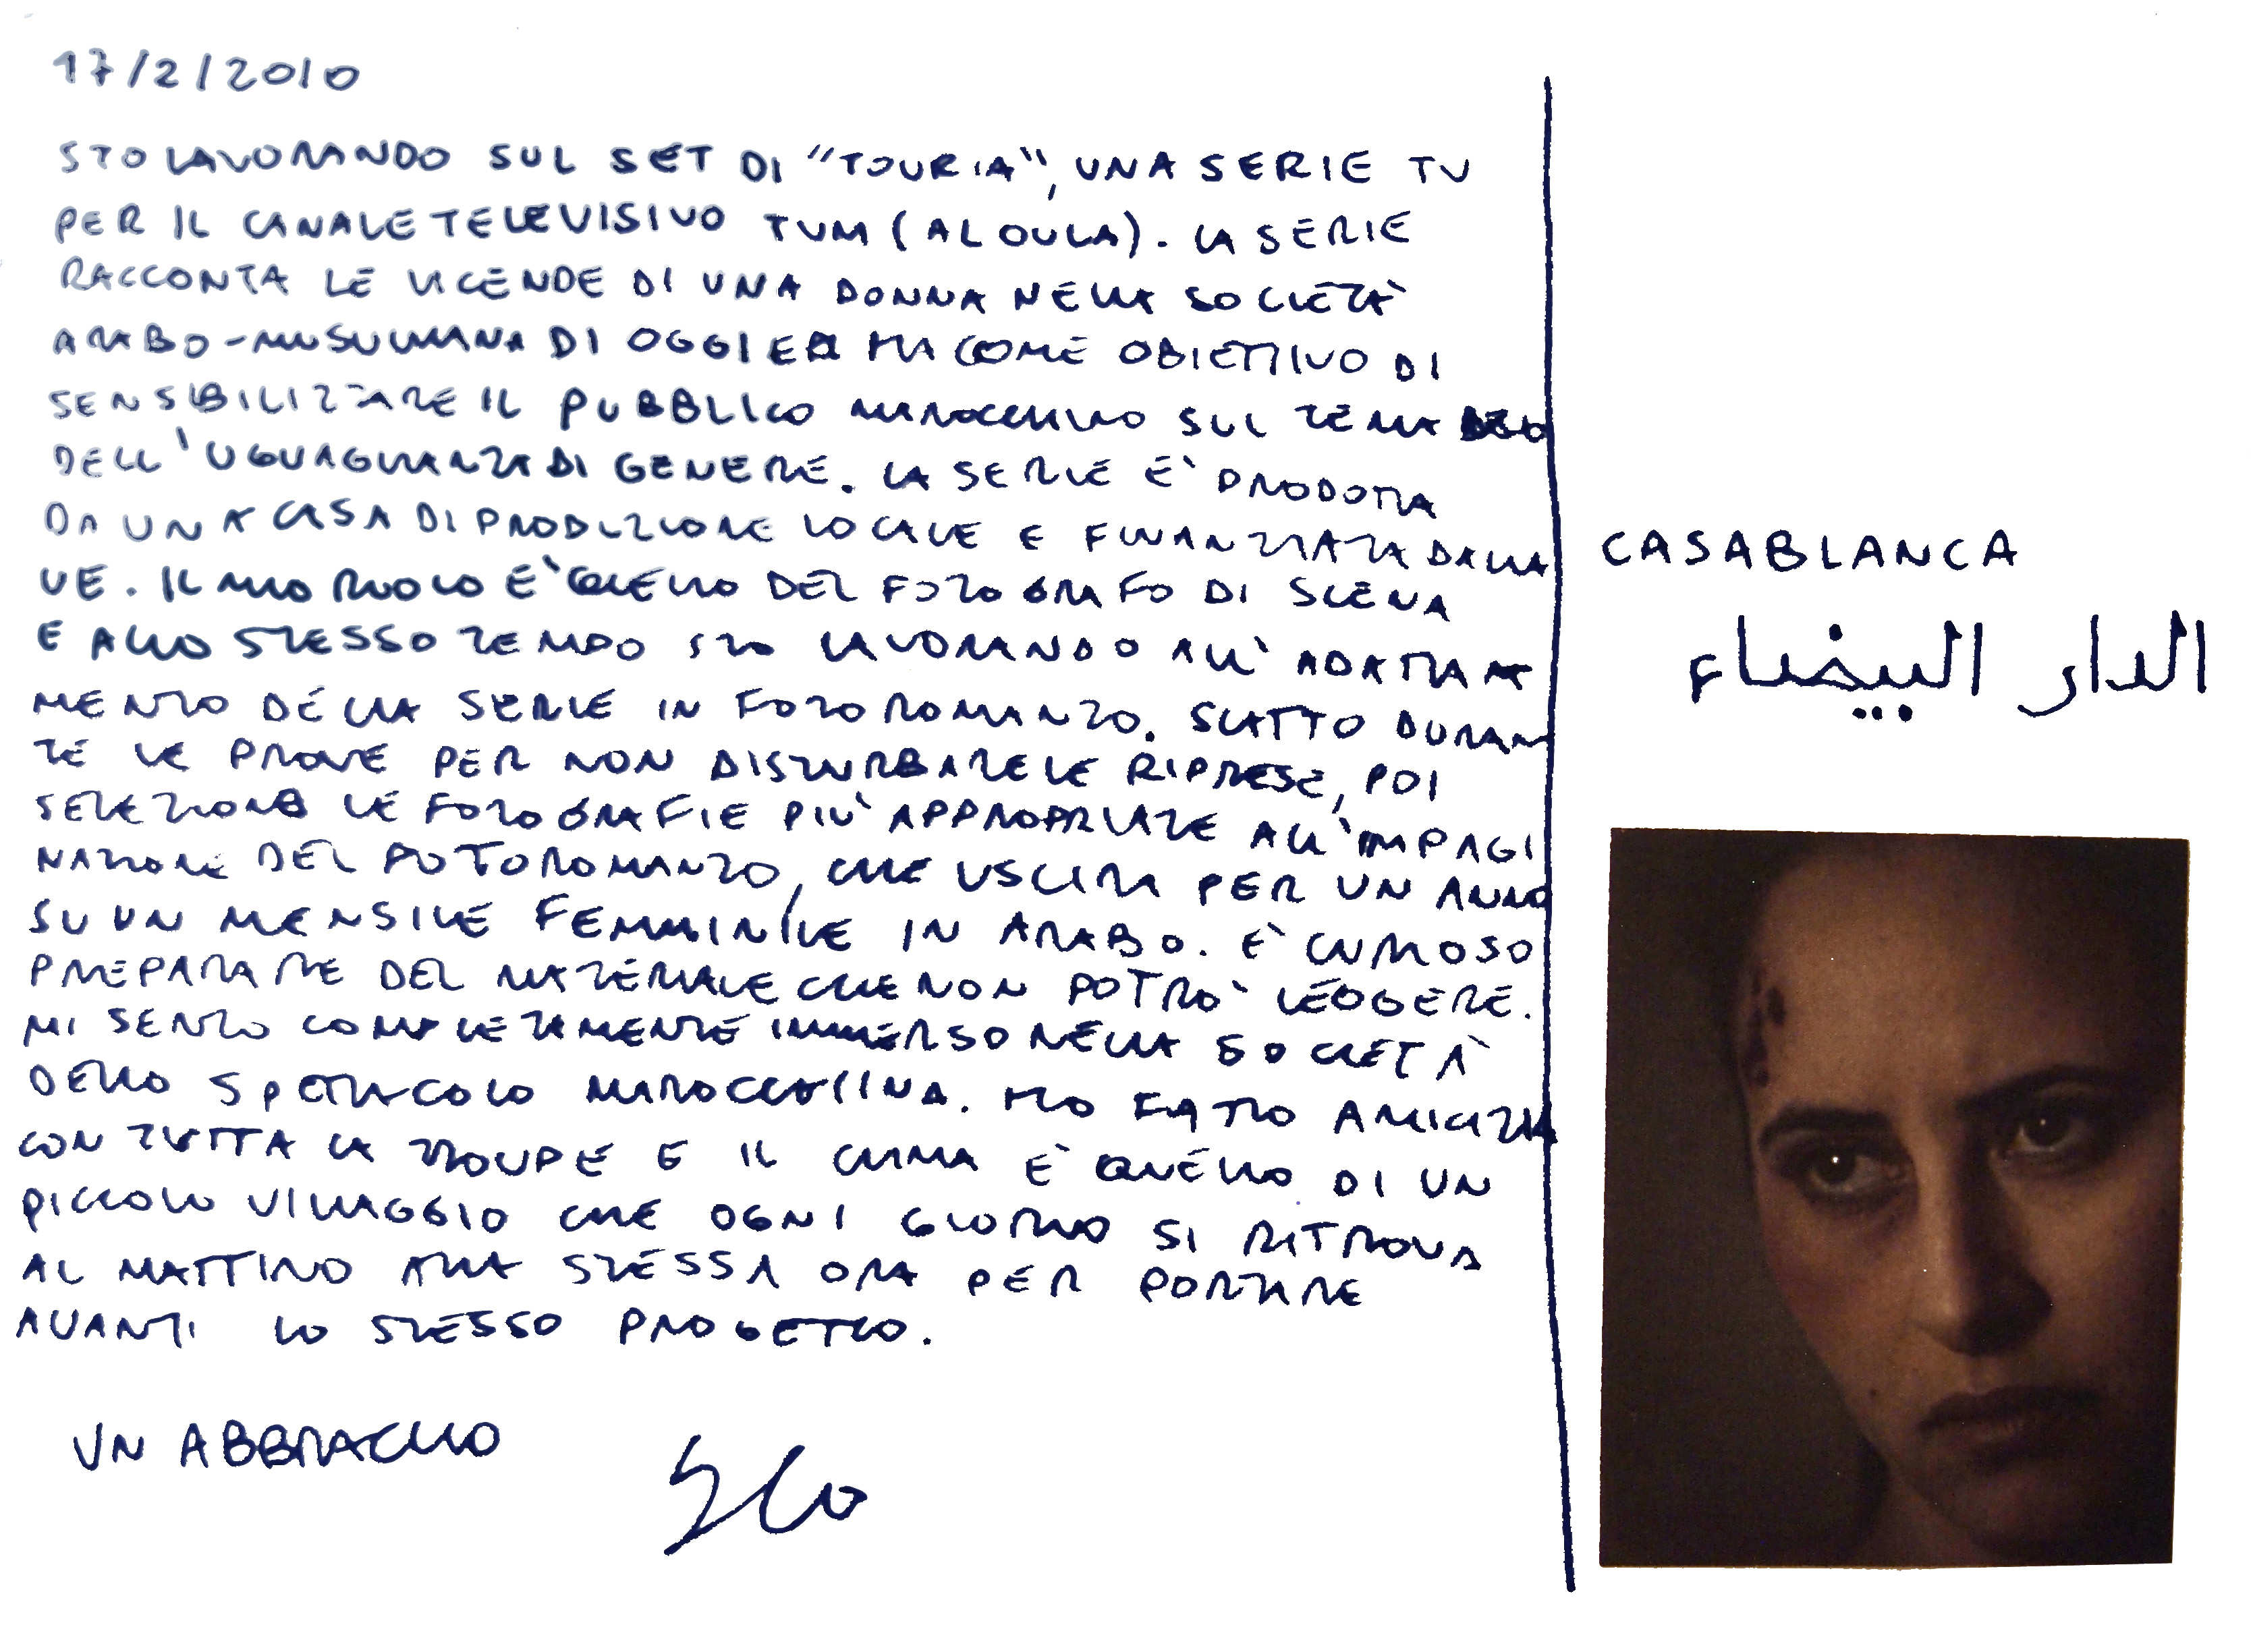 17/2/2010
STO LAVORANDO SUL SET DI "TOURIA", UNA SERIE TV
PER IL CANALE TELEVISIVO TVM (AL OULA). LA SERIE
RACCONTA LE VICENDE DI UNA DONNA NELLA SOCIETÀ
ARABO-MUSULMANA DI OGGI E HA COME OBIETTIVO DI
SENSIBILIZZARE IL PUBBLICO MAROCCHINO SUL TEMA
DELL'UGUAGLIANZA DI GENERE. LA SERIE È PRODOTTA
DA UNA CASA DI PRODUZIONE LOCALE E FINANZIATA DALLA
UE. IL MIO RUOLO È QUELLO DEL FOTOGRAFO DI SCENA
E ALLO STESSO TEMPO STO LAVORANDO ALL'ADATTA
MENTO DELLA SERIE IN FOTOROMANZO. SCATTO DURAN
TE LE PROVE PER NON DISTURBARE LE RIPRESE, POI
SELEZIONO LE FOTOGRAFIE PIÙ APPROPRIATE ALL'IMPAGI
NAZIONE DEL FOTOROMANZO, CHE USCIRA PER UN ANNO
SU UN MENSILE FEMMINILE IN ARABO. È CURIOSO
PREPARARE DEL MATERIALE CHE NON POTRÒ LEGGERE.
MI SENTO COMPLETAMENTE IMMERSO NELLA SOCIETÀ
DELLO SPETTACOLO MAROCCHINA. HO FATTO AMICIZIA
CON TUTTA LA TROUPE E IL CLIMA È QUELLO DI UN
PICCOLO VILLAGGIO CHE OGNI GIORNO SI RITROVA
AL MATTINO ALLA STESSA ORA PER PORTARE
AVANTI LO STESSO PROGETTO.
UN ABBRACCIO
CASABLANCA
الدار البيضاء